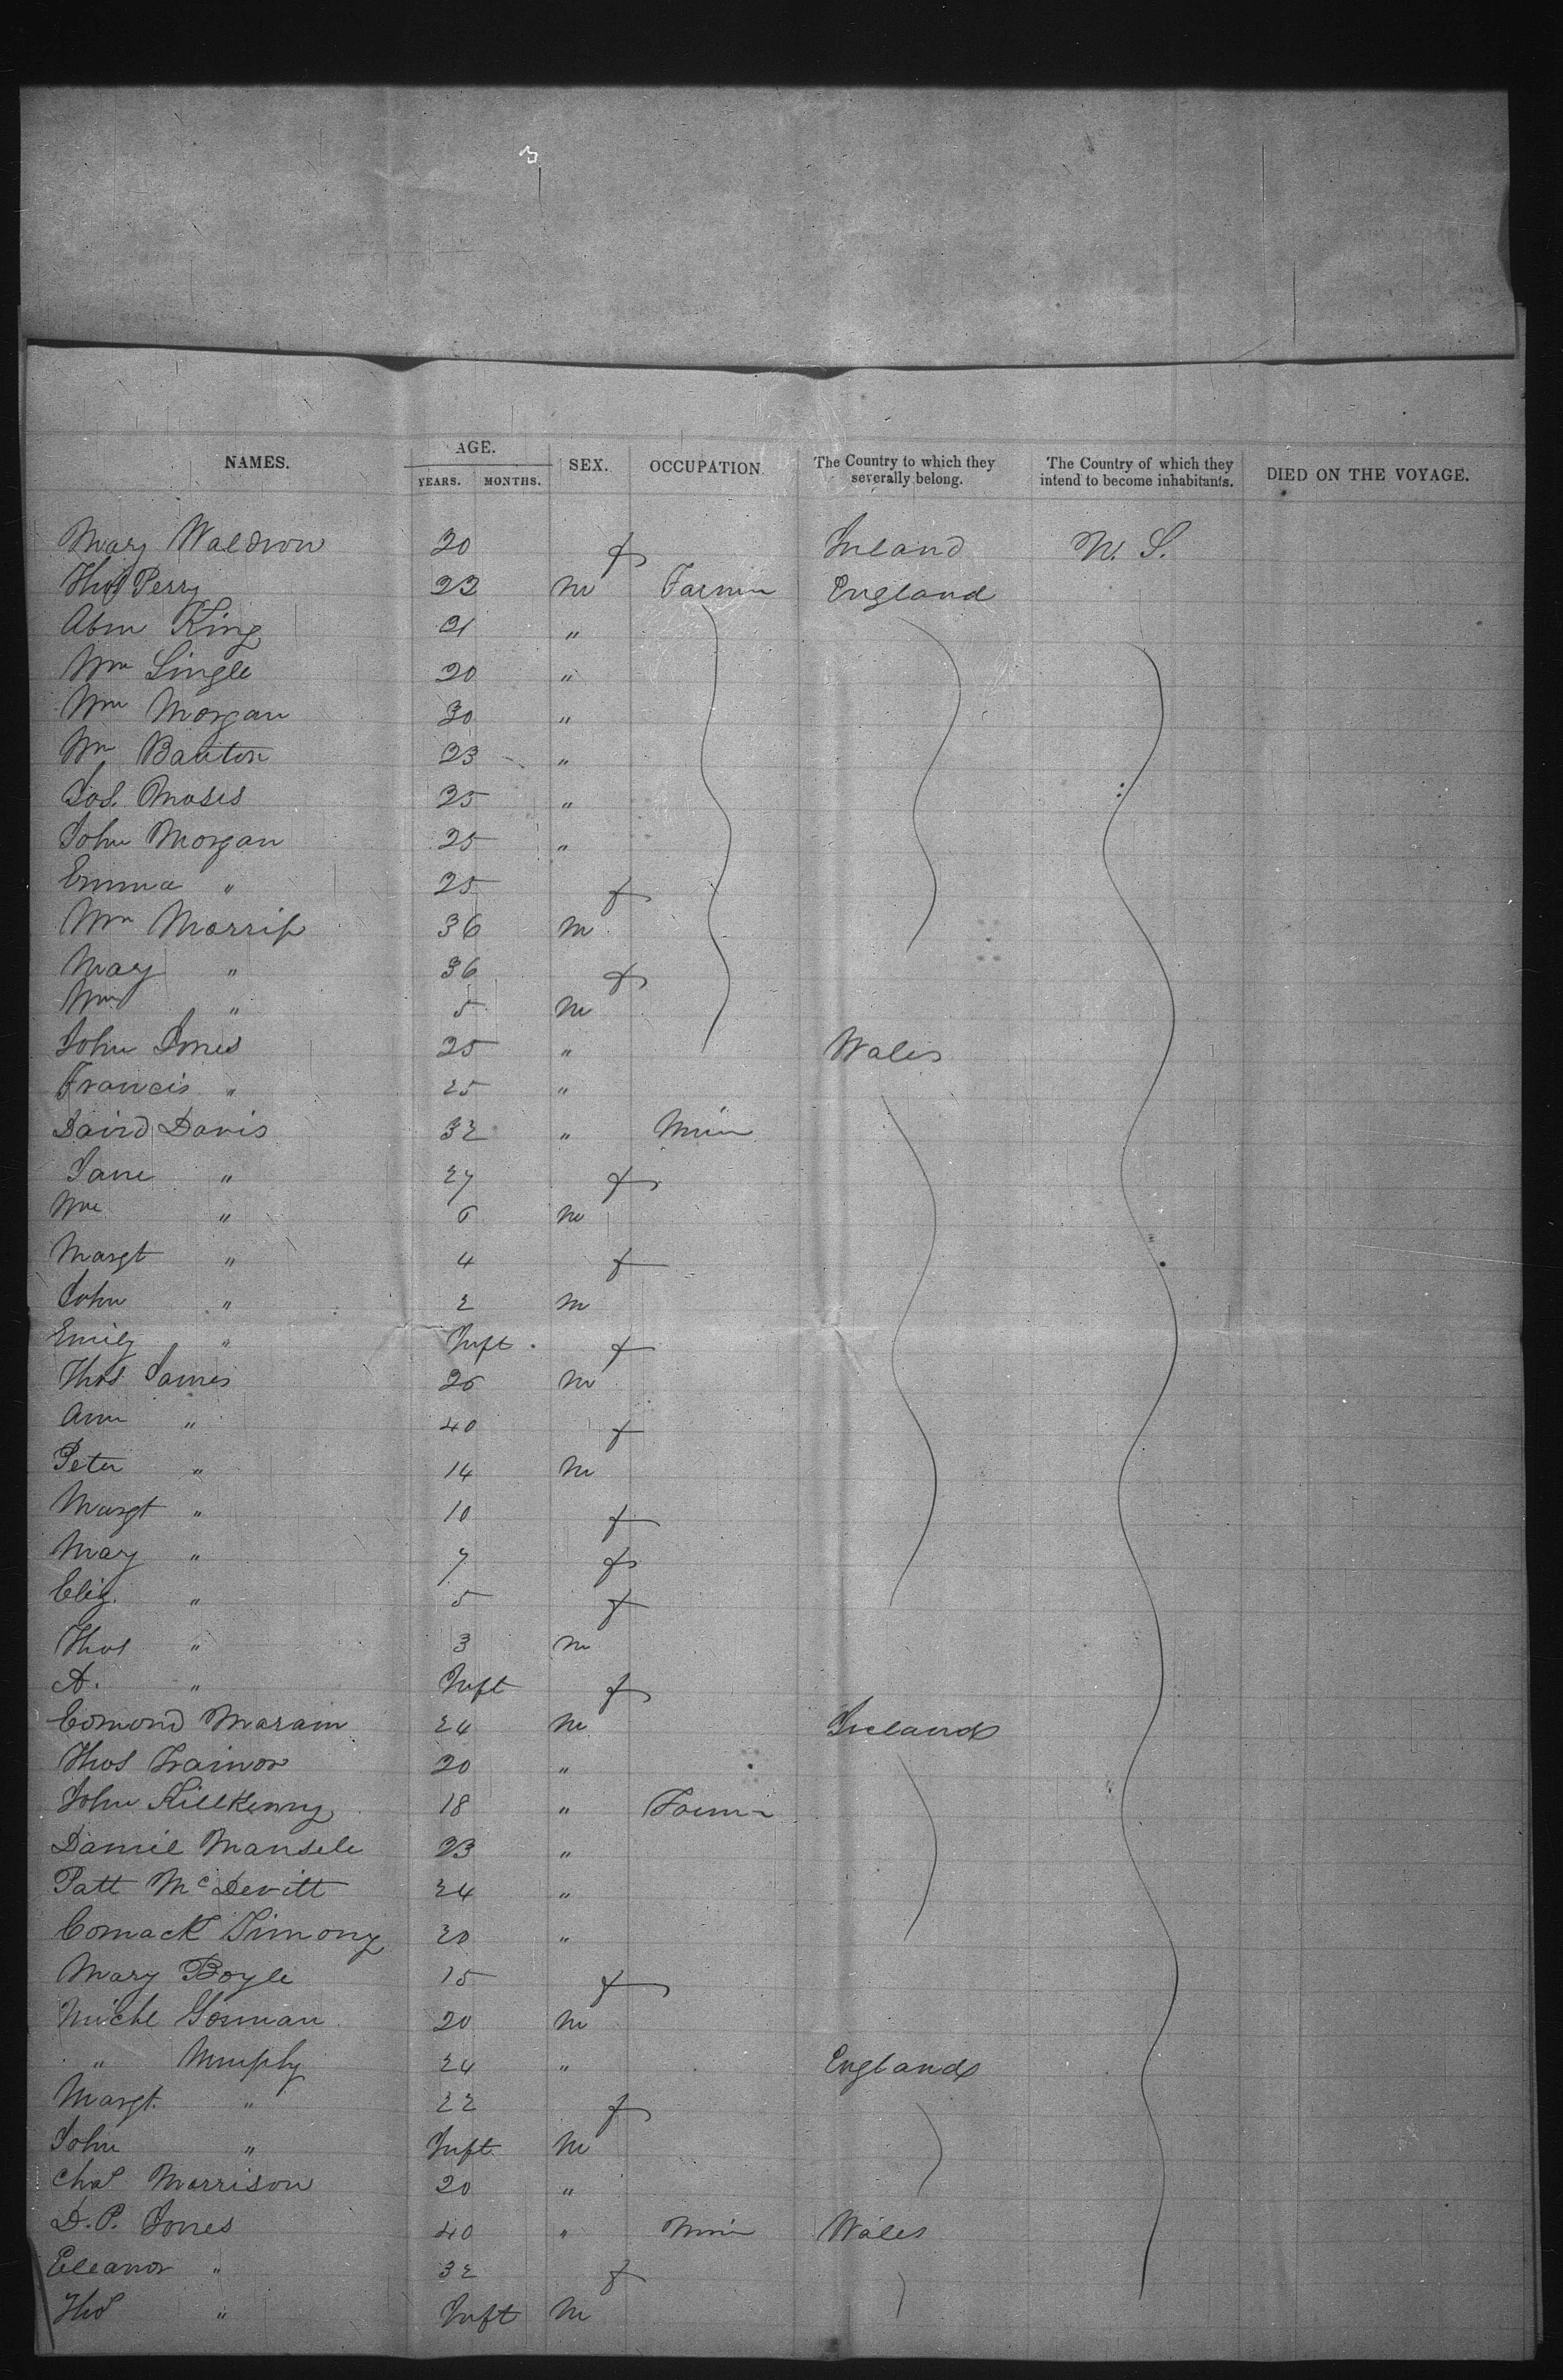 3
NAMES. AGE. SEX. OCCUPATION. The Country to which they severally belong. The Country of which they intend to become inhabitants. DIED ON THE VOYAGE.
YEARS. MONTHS.
Mary Waldron 20 f Ireland U. S.
Thos Perry 22 m Farmer England
Abm King 21 "
Wm Single 20 "
Wm Morgan 30 "
Wm Banton 23 "
Jos. Moses 25 "
John Morgan 25 "
Emma " 25 f
Wm Morriss 36 m
Mary " 36 f
Wm " 5 m
John Jones 25 " Wales
Francis " 25 "
David Davis 32 " Miner
Jane " 27 f
Wm " 6 m
Margt " 4 f
John " 2 m
Emily " Inft f
Thos James 26 m
Ann " 40 f
Peter " 14 m
Margt " 10 f
Mary " 7 f
Eliz. " 5 f
Thos " 3 m
A. " Inft f
Edmond Marain 24 m Ireland
Thos Trainor 20 "
John Killkenny 18 " Farmer
Daniel Mansele 23 "
Patt McDevitt 24 "
Comack Timony 20 "
Mary Boyle 15 f
Michl Gorman 20 m
" Murphy 24 " England
Margt. " 22 f
John " Inft m
Chas Morrison 20 "
D. P. Jones 40 " Miner Wales
Eleanor " 32 f
Thos " Inft m